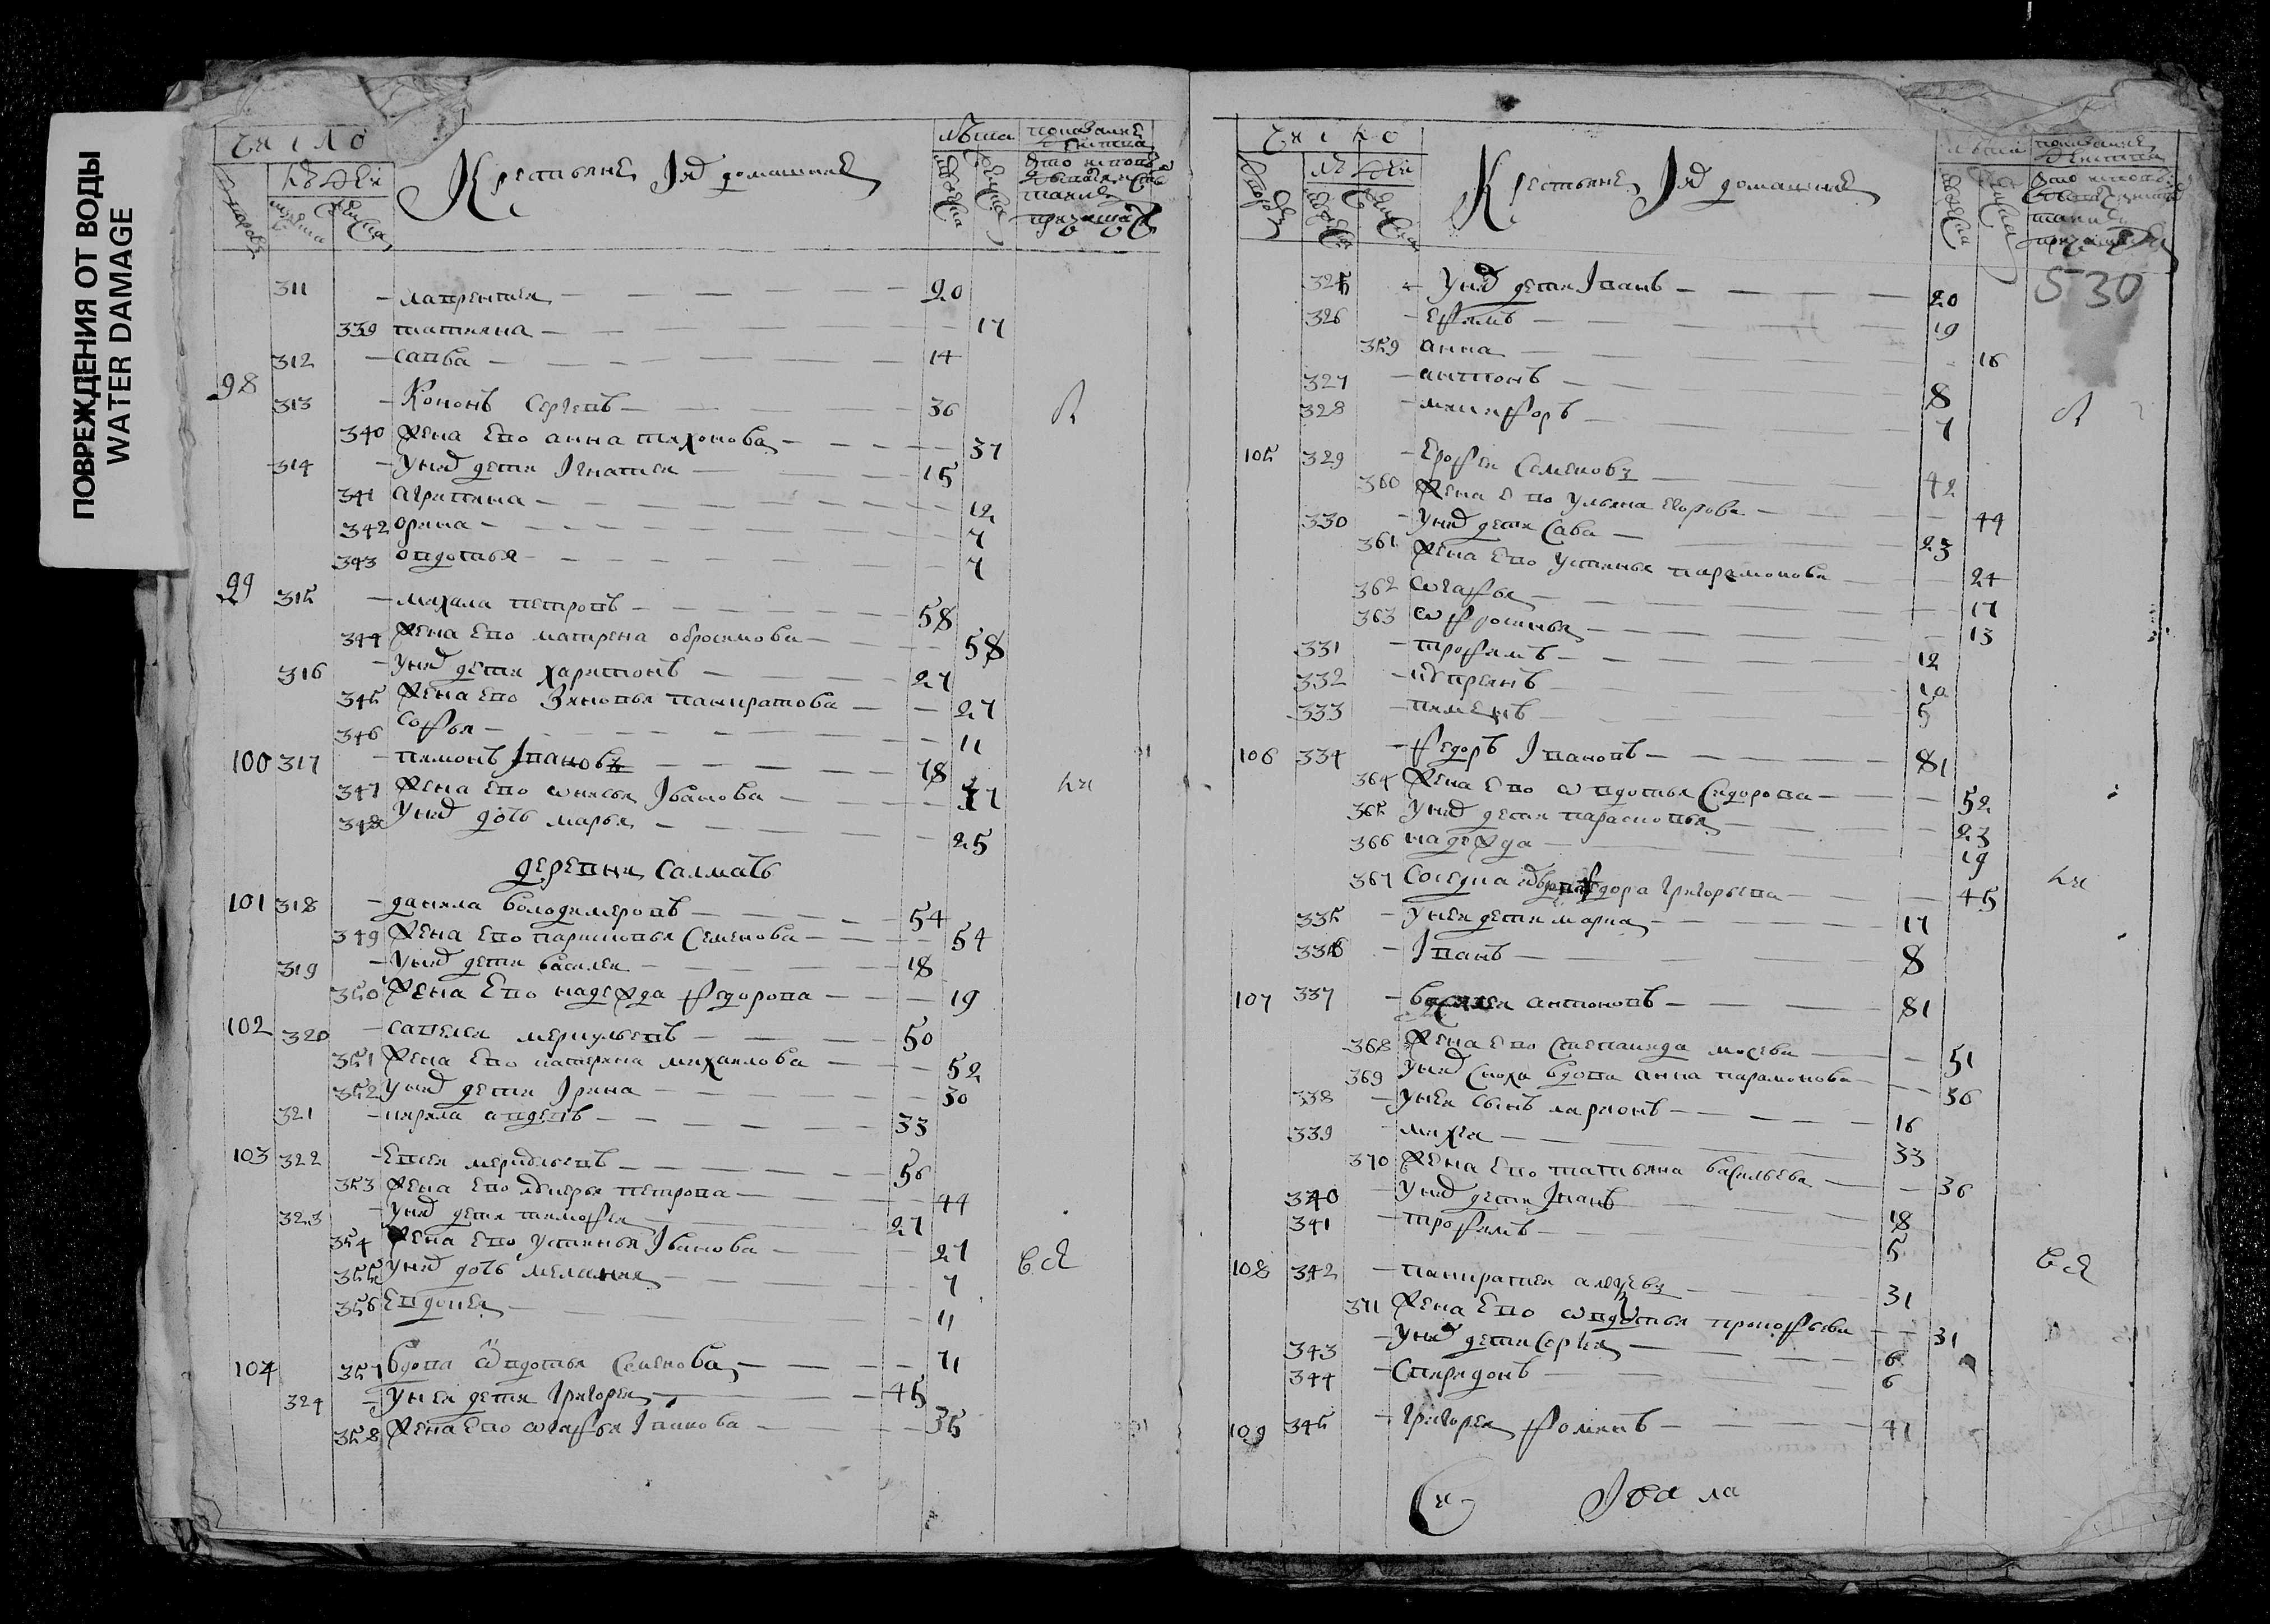 ПОВРЕЖДЕНИЯ ОТ ВОДЫ
WATER DAMAGE
число
людей
Крестьяне I их домашние
лѣта
311 – лаврентеи – 20
339 татияна – 17
312 – савва – 14
98 313 – Кононъ Сергеевъ – 36
340 жена ево анна тихонова – 37
314 – у них дети Iгнатеи – 15
341 агрипина – 12
342 орина – 7
343 овдотья – 7
99 315 – михаила петровъ – 58
344 жена ево матрена обросимова – 58
316 – у них дети харитонъ – 27
345 жена ево Зиновья панкратова – 27
346 софья – 11
100 317 – пимонъ Iвановъ – 78
347 жена ево Iванова – 77
348 у них дочь марья – 25
деревни Салмачь
101 318 – данила володимеровъ – 54
349 жена ево парасковья Семенова – 54
319 – у них дети василеи – 18
350 жена ево надежда федорова – 19
102 320 – савелеи меркульевъ – 50
351 жена ево катерина михаилова – 52
352 у них дети Iрина – 30
321 – кирила авдеевъ – 33
103 322 – меркульевъ – 56
353 жена ево лукерья петрова – 44
323 – у них дети тимофеи – 27
354 жена ево устинья Iванова – 27
355 у них дочь мелания – 7
356 – 11
104 357 вдова овдотья Семенова – 71
324 – у неи дети григореи – 45
358 жена ево огафья Iванова – 35
число
людей
Крестьяне I их домашние
лѣта
530
325 – у них дети Iванъ – 20
326 – ефимъ – 19
359 анна – 16
327 – антонъ – 8
328 – никифоръ – 7
105 329 – Ерофеи Семеновъ – 42
360 жена ево ульяна егорова – 44
330 – у них дети Сава – 23
361 жена ево устинья парамонова – 24
362 огафья – 17
363 офросинья – 13
331 – трофимъ – 12
332 – куприянъ – 10
333 – пименъ – 5
106 334 – федоръ Iвановъ – 81
364 жена ево овдотья Сидорова – 52
365 у них дети парасковья – 23
366 надежда – 19
367 григорьева – 45
335 – у неи дети марка – 17
336 – Iванъ – 8
107 337 – василеи антоновъ – 81
368 жена ево Степанида мосева – 51
369 у них сноха вдова анна парамонова – 36
338 – у неи сынъ ларионъ – 16
339 – михеи – 33
370 жена ево татьяна васильева – 36
340 – у них дети Iванъ – 18
341 – трофимъ – 5
108 342 – панкратеи – 31
371 жена ево овдотья прокофьева – 31
343 – у них дети Сергеи – 6
344 – Спиридонъ – 6
109 345 – григореи фоминъ – 41